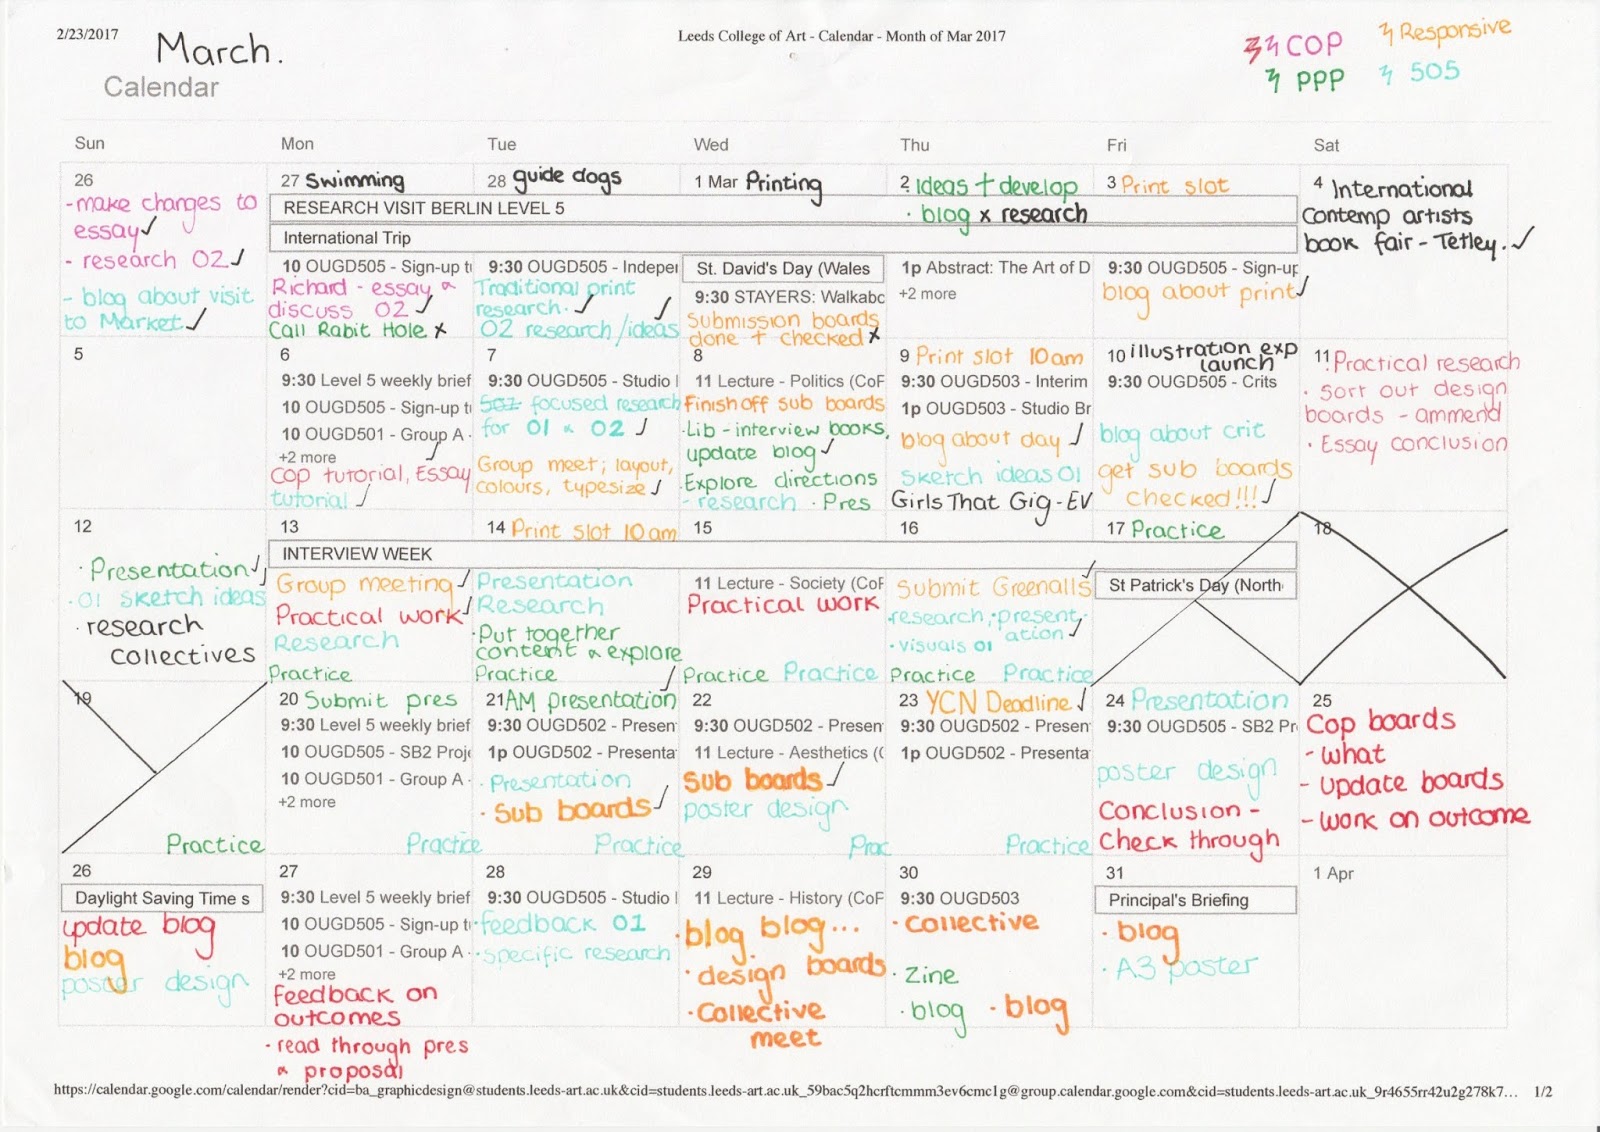 2/23/2017
Leeds College of Art - Calendar - Month of Mar 2017
March.
Calendar
COP
Responsive
PPP
505
Sun
Mon
Tue
Wed
Thu
Fri
Sat
26
-make changes to
essay
- research 02
- blog about visit
to Market
27 Swimming
28 guide dogs
1 Mar Printing
2 Ideas + develop
· blog x research
3 Print slot
4 International
Contemp artists
book fair - Tetley.
RESEARCH VISIT BERLIN LEVEL 5
International Trip
10 OUGD505 - Sign-up t
Richard - essay &
discuss 02
Call Rabit Hole x
9:30 OUGD505 - Indepe
Traditional print
research.
02 research/ideas
St. David's Day (Wales
9:30 STAYERS: Walkabo
Submission boards
done + checked x
1p Abstract: The Art of D
+2 more
9:30 OUGD505 - Sign-up
blog about print
5
6
9:30 Level 5 weekly brief
10 OUGD505 - Sign-up t
10 OUGD501 - Group A -
+2 more
Cop tutorial, Essay
tutorial
7
9:30 OUGD505 - Studio
focused research
for 01 & 02
Group meet; layout,
colours, typesize
8
11 Lecture - Politics (CoF
Finish off sub boards
·Lib - interview books,
update blog
·Explore directions
- research · Pres
9 Print slot 10am
9:30 OUGD503 - Interim
1p OUGD503 - Studio Br
blog about day
Sketch ideas 01
Girls That Gig - EV
10 illustration exp
launch
9:30 OUGD505 - Crits
blog about crit
get sub boards
checked!!!
11 Practical research
· Sort out design
boards - ammend
· Essay conclusion
12
· Presentation
· 01 sketch ideas
· research
collectives
13
14 Print slot 10am
15
16
17 Practice
18
INTERVIEW WEEK
Group meeting
Practical work
Research
Practice
Presentation
Research
·Put together
content & explore
Practice
11 Lecture - Society (CoF
Practical work
Practice Practice
Submit Greenalls
·research, ·present,
ation
·visuals 01
Practice Practice
St Patrick's Day (North
19
Practice
20 Submit pres
9:30 Level 5 weekly brief
10 OUGD505 - SB2 Proj
10 OUGD501 - Group A -
+2 more
Practice
21 AM presentation
9:30 OUGD502 - Presen
1p OUGD502 - Presenta
· Presentation
· Sub boards
Practice
22
9:30 OUGD502 - Presen
11 Lecture - Aesthetics (
Sub boards
poster design
Prac
23 YCN Deadline
9:30 OUGD502 - Presen
1p OUGD502 - Presenta
Practice
24 Presentation
9:30 OUGD505 - SB2 Pr
poster design
Conclusion -
Check through
25
Cop boards
- what
- update boards
- work on outcome
26
Daylight Saving Time s
update blog
blog
poster design
27
9:30 Level 5 weekly brief
10 OUGD505 - Sign-up t
10 OUGD501 - Group A -
+2 more
Feedback on
outcomes
· read through pres
& proposal
28
9:30 OUGD505 - Studio
·feedback 01
·specific research
29
11 Lecture - History (CoF
·blog blog...
· design boards
· Collective
meet
30
9:30 OUGD503
· Collective
· Zine
· blog · blog
31
Principal's Briefing
· blog
· A3 poster
1 Apr
https://calendar.google.com/calendar/render?cid=ba_graphicdesign@students.leeds-art.ac.uk&cid=students.leeds-art.ac.uk_59bac5q2hcrftcmmm3ev6cmc1g@group.calendar.google.com&cid=students.leeds-art.ac.uk_9r4655rr42u2g278k7... 1/2